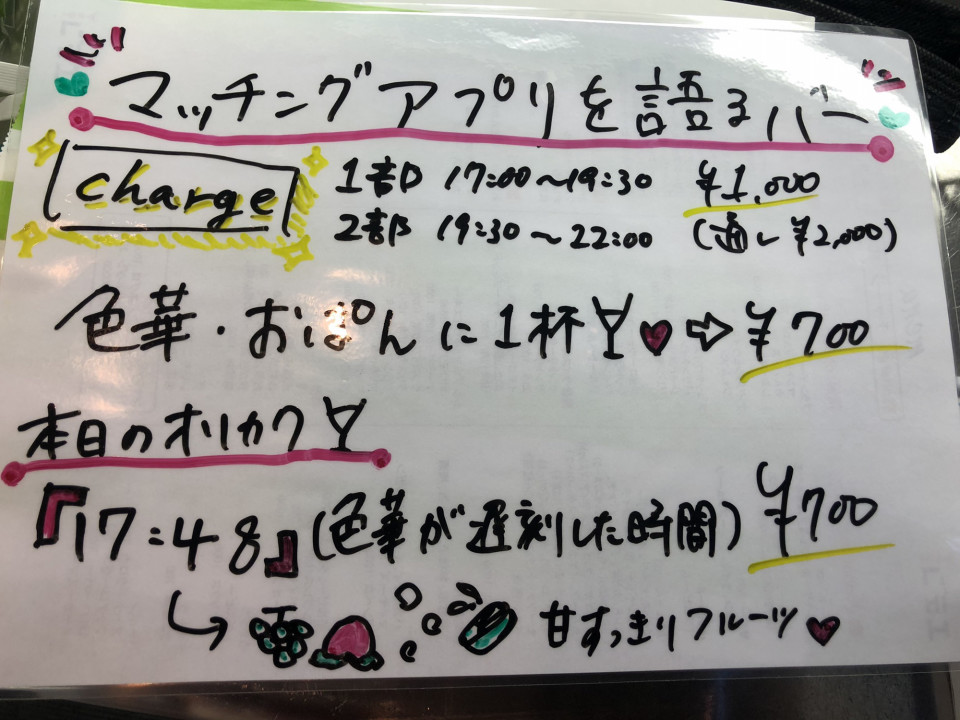 マッチングアプリを語るバー
charge
1部 17:00～19:30 ¥1,000
2部 19:30～22:00 (通し¥2,000)
色華・おぱんに1杯 ⇨ ¥700
本日のオリカク
『17:48』(色華が遅刻した時間) ¥700
甘すっきりフルーツ